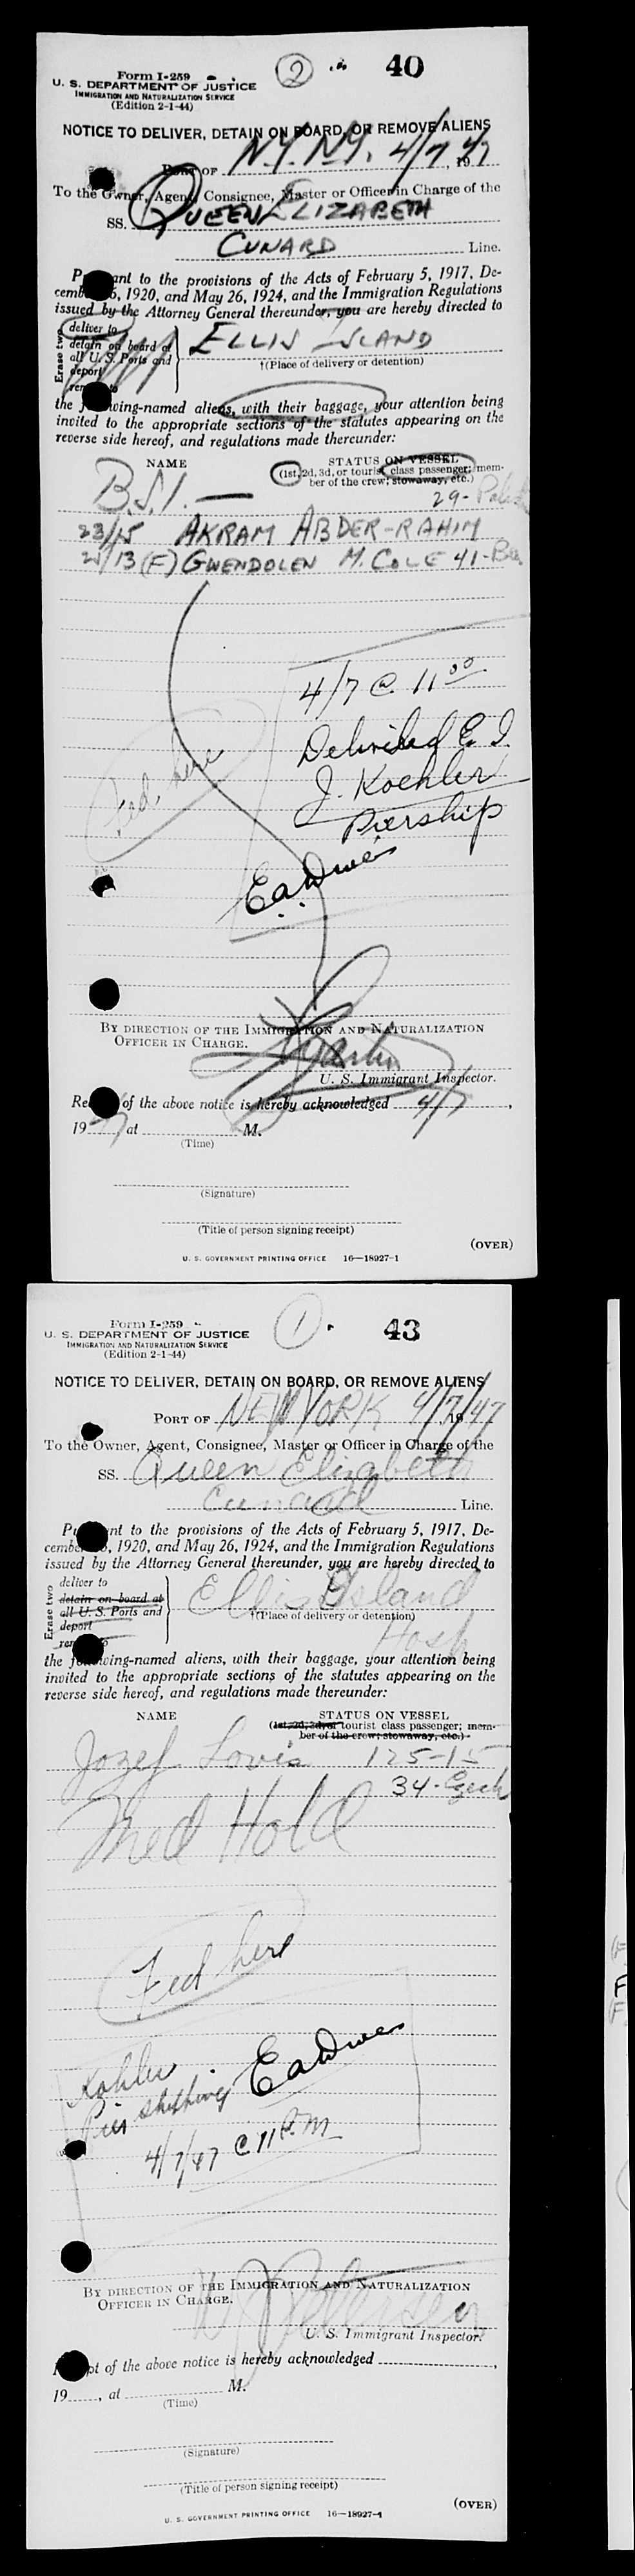 Form I-259
② 40
U. S. DEPARTMENT OF JUSTICE
IMMIGRATION AND NATURALIZATION SERVICE
(Edition 2-1-44)
NOTICE TO DELIVER, DETAIN ON BOARD, OR REMOVE ALIENS
PORT OF N.Y. N.Y. 4/7, 1947
To the Owner, Agent, Consignee, Master or Officer in Charge of the
SS. QUEEN ELIZABETH
CUNARD Line.
P ant to the provisions of the Acts of February 5, 1917, De-
cemb 5, 1920, and May 26, 1924, and the Immigration Regulations
issued by the Attorney General thereunder, you are hereby directed to
Erase two
deliver to
detain on board at
all U. S. Ports and
deport
rem
ELLIS ISLAND
†(Place of delivery or detention)
the f wing-named aliens, with their baggage, your attention being
invited to the appropriate sections of the statutes appearing on the
reverse side hereof, and regulations made thereunder:
NAME
STATUS ON VESSEL
(1st, 2d, 3d, or tourist class passenger; mem-
ber of the crew; stowaway, etc.)
B.S.I. —
29-
23/15 AKRAM ABDER-RAHIM
21/13 (F) GWENDOLEN M. COLE 41-
4/7 @ 11 00
Fed. here
Delivered E. I.
J. Koehler
Piership
By direction of the Immigration and Naturalization
Officer in Charge.
U. S. Immigrant Inspector.
Re of the above notice is hereby acknowledged 4/7,
19 7, at M.
(Time)
(Signature)
(Title of person signing receipt)
(OVER)
U. S. GOVERNMENT PRINTING OFFICE 16—18927-1
Form I-259
① 43
U. S. DEPARTMENT OF JUSTICE
IMMIGRATION AND NATURALIZATION SERVICE
(Edition 2-1-44)
NOTICE TO DELIVER, DETAIN ON BOARD, OR REMOVE ALIENS
PORT OF NEW YORK 4/7/1947
To the Owner, Agent, Consignee, Master or Officer in Charge of the
SS. Queen Elizabeth
Cunard Line.
Pu nt to the provisions of the Acts of February 5, 1917, De-
cemb , 1920, and May 26, 1924, and the Immigration Regulations
issued by the Attorney General thereunder, you are hereby directed to
Erase two
deliver to
detain on board at
all U. S. Ports and
deport
rem
Ellis Island
†(Place of delivery or detention)
Hosp
the f wing-named aliens, with their baggage, your attention being
invited to the appropriate sections of the statutes appearing on the
reverse side hereof, and regulations made thereunder:
NAME
STATUS ON VESSEL
(1st, 2d, 3d, or tourist class passenger; mem-
ber of the crew; stowaway, etc.)
Jozef Lovis 125-15
34-Czech
Med Hold
Fed here
Kohler
Pier shipping
4/7/47 @ 11 P.M
By direction of the Immigration and Naturalization
Officer in Charge.
U. S. Immigrant Inspector.
pt of the above notice is hereby acknowledged ,
19 , at M.
(Time)
(Signature)
(Title of person signing receipt)
(OVER)
U. S. GOVERNMENT PRINTING OFFICE 16—18927-1